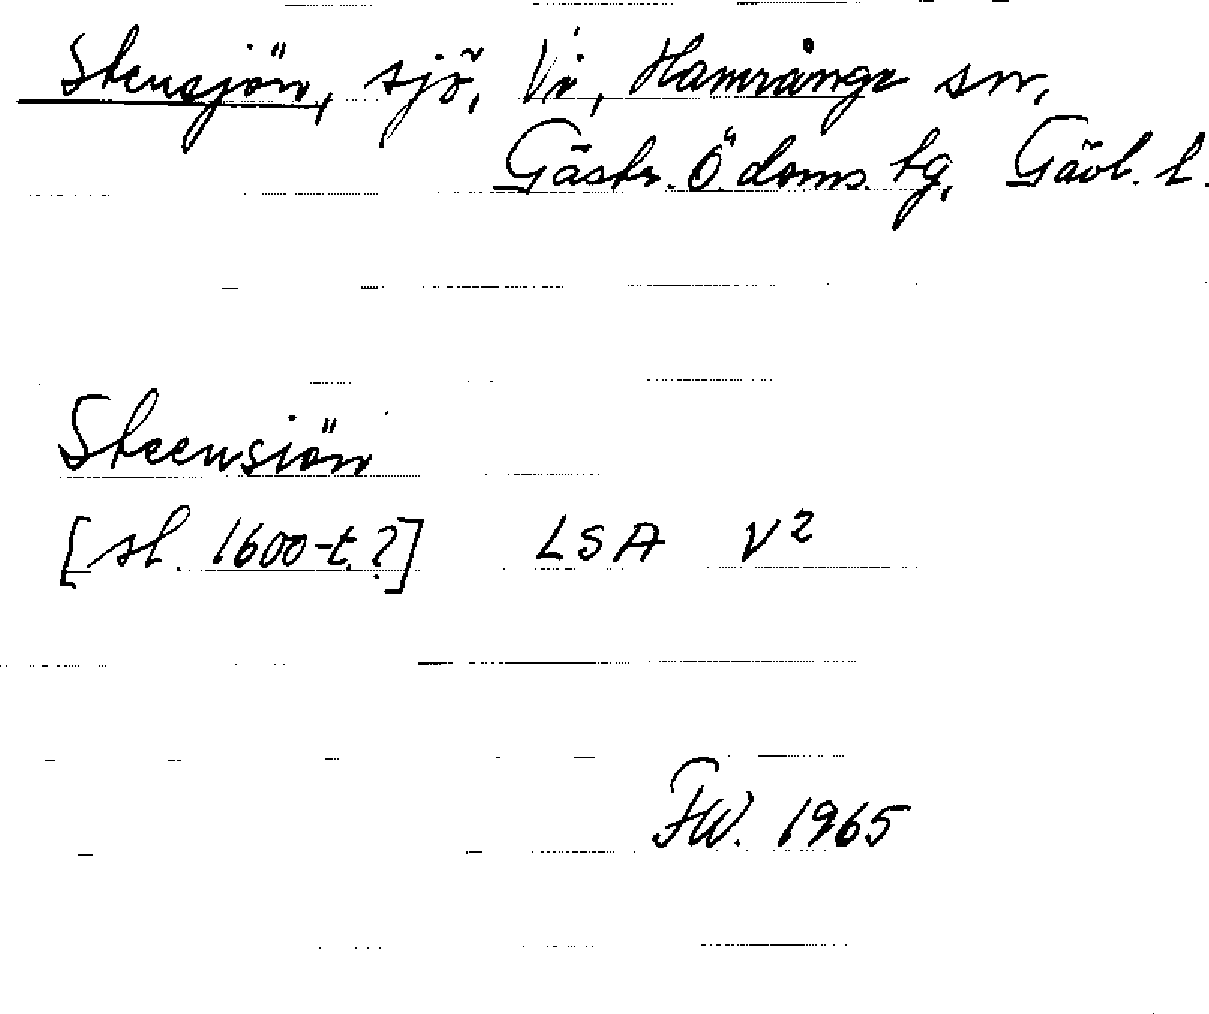 Stensjön, sjö, Vi, Hamrånge sn,
Gästr. Ö. doms. tg, Gävl. l.
Steensiön
[sl. 1600-t.?] LSA V2
FW. 1965